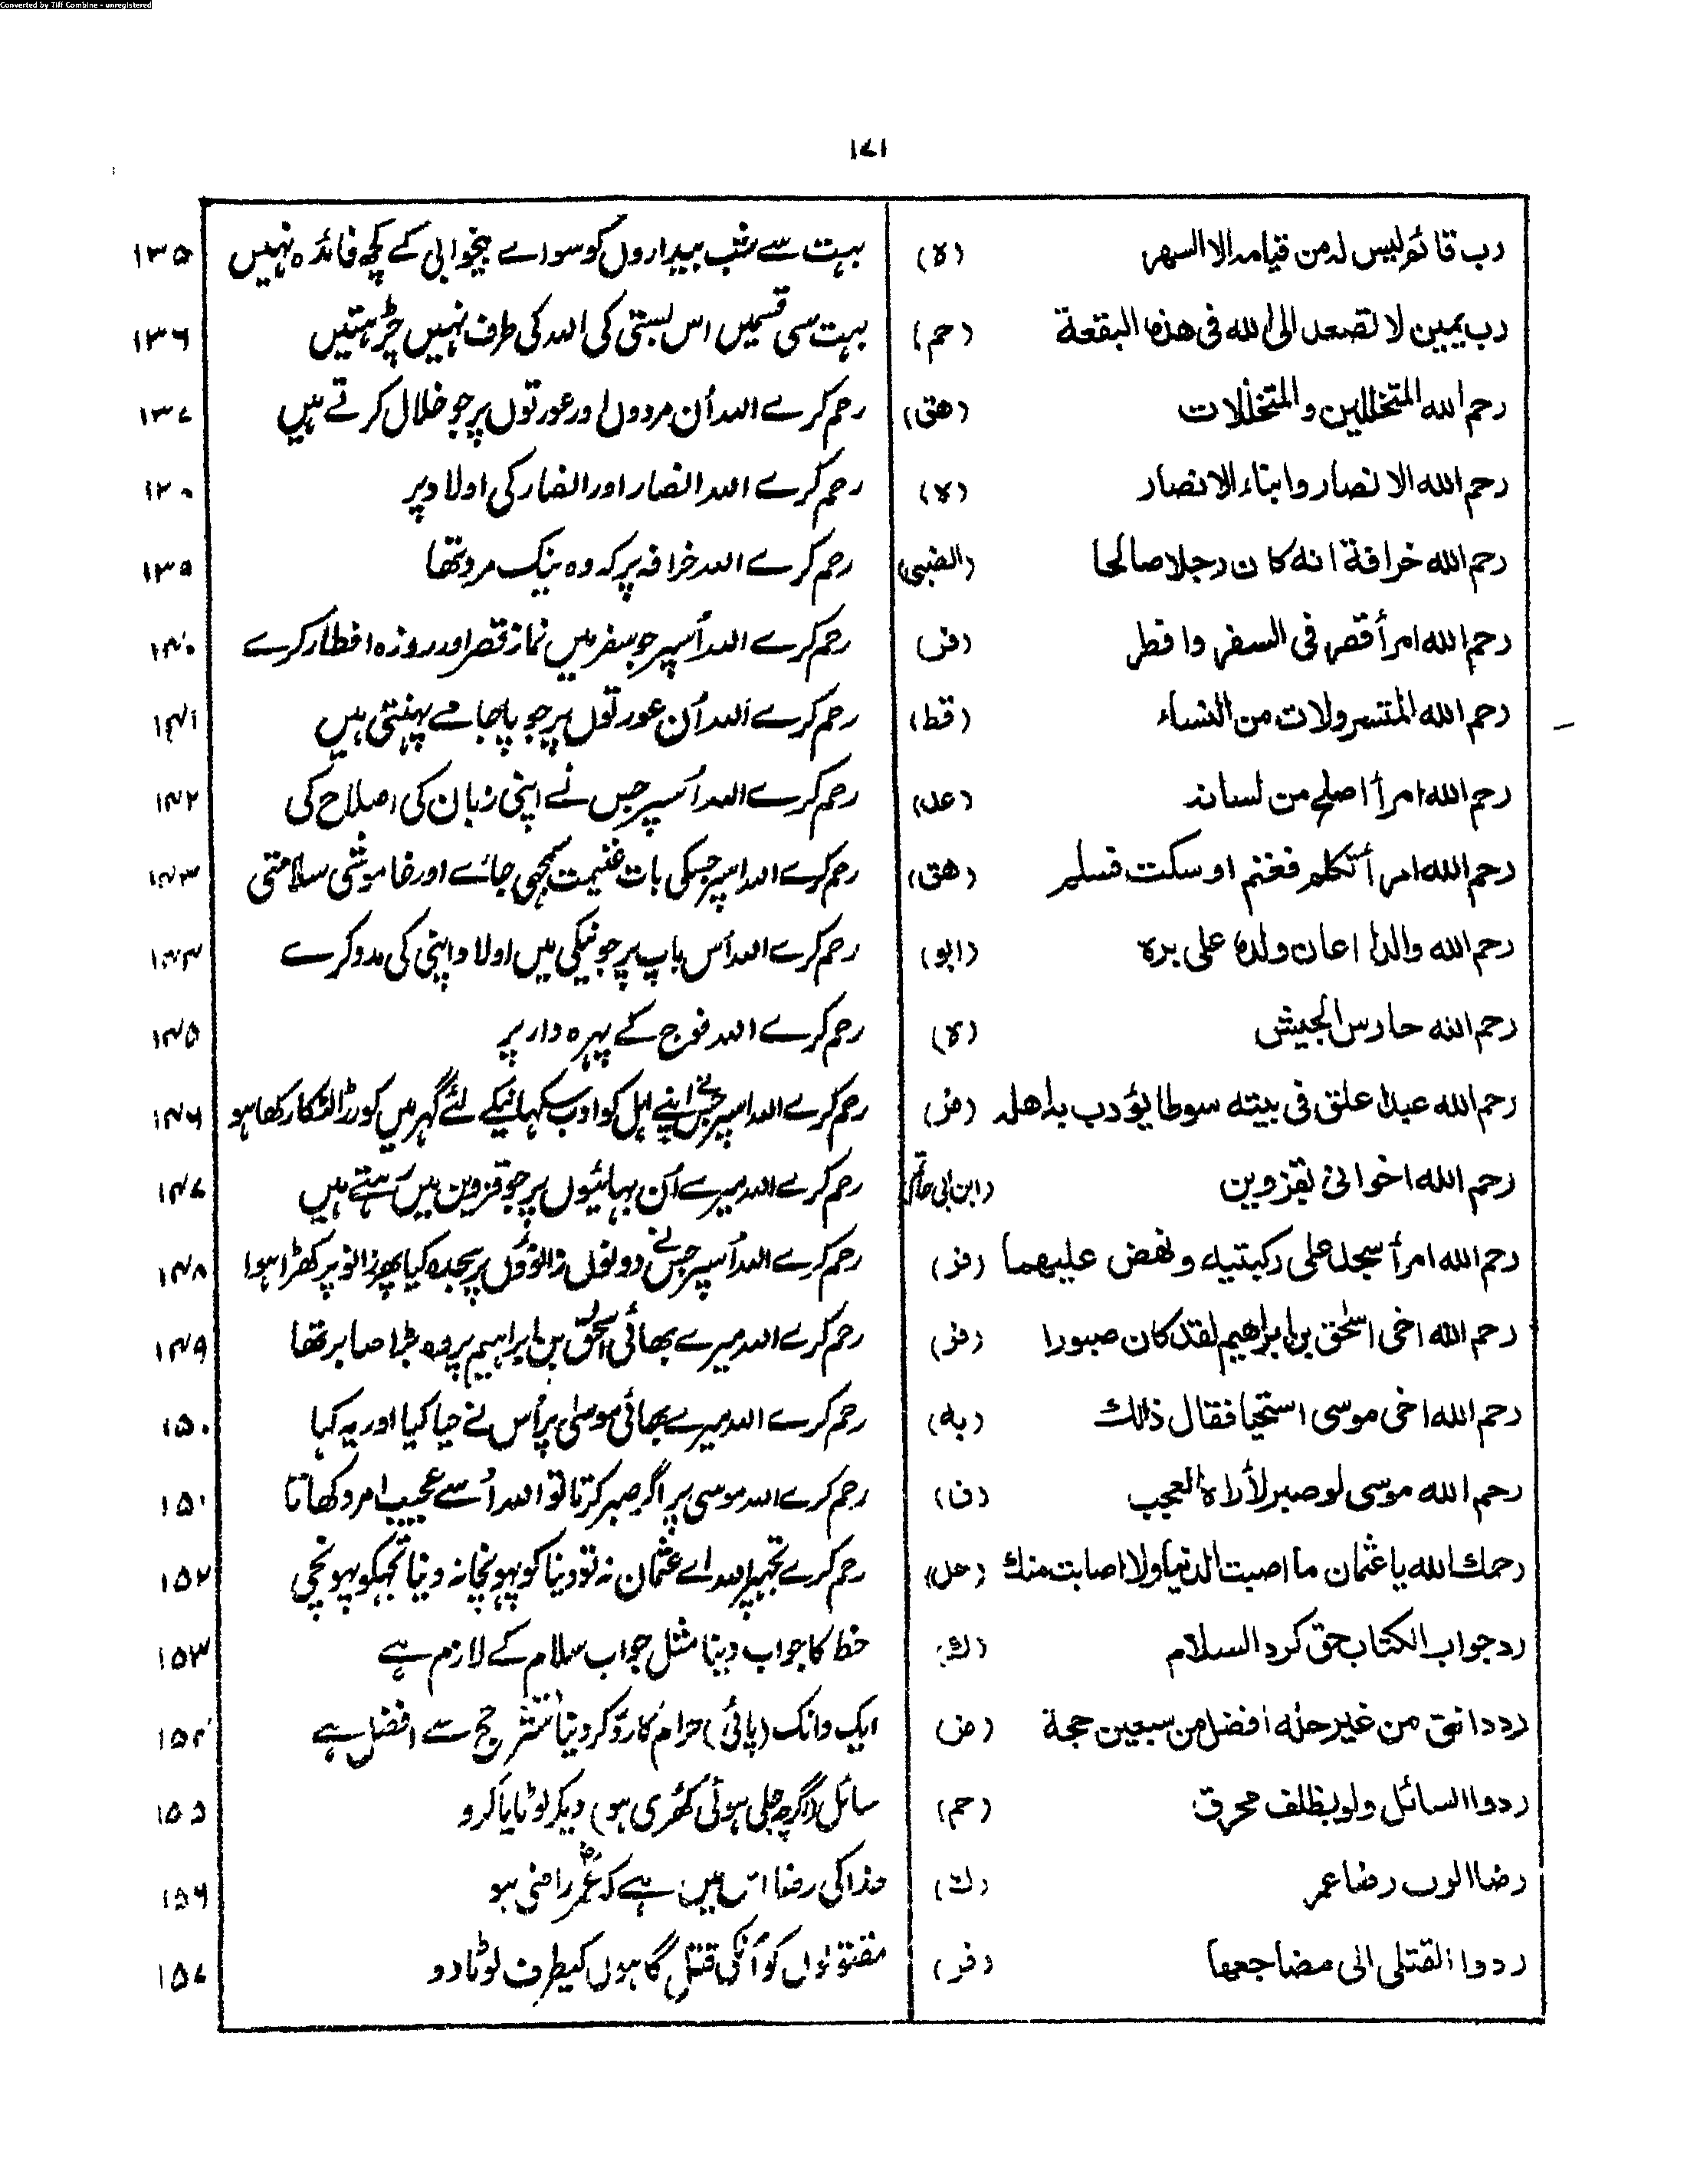 Converted by Tiff Combine - unregistered
۱۷۱
رب قائم ليس له من قيامه الا السهر (لا) بہت سے شب بیداروں کو سواے بیخوابی کے کچھ فائدہ نہیں ۱۳۵
رب يمين لا تصعد الى الله فى هذه البقعة (حم) بہت سی قسمیں اس بستی کی اللہ کی طرف نہیں چڑہتیں ۱۳۶
رحم الله المتخللين والمتخللات (هق) رحم کرے اللہ اُن مردوں اور عورتوں پر جو خلال کرتے ہیں ۱۳۷
رحم الله الانصار وابناء الانصار (لا) رحم کرے اللہ انصار اور انصار کی اولاد پر
رحم الله خرافة انه كان رجلا صالحا (الضبى) رحم کرے اللہ خرافہ پر کہ وہ نیک مرد تھا ۱۳۹
رحم الله امرأ قصر فى السفر وافطر (فر) رحم کرے اللہ اُسپر جو سفر میں نماز قصر اور روزہ افطار کرے ۱۴۰
رحم الله المتسرولات من النساء (قط) رحم کرے اللہ اُن عورتوں پر جو پاجامے پہنتی ہیں ۱۴۱
رحم الله امرأ اصلح من لسانه (عد) رحم کرے اللہ اُسپر جس نے اپنی زبان کی اصلاح کی ۱۴۲
رحم الله امرأ تكلم فغنم او سكت فسلم (هق) رحم کرے اللہ اسپر جسکی بات غنیمت سمجھی جائے اور خاموشی سلامتی ۱۴۳
رحم الله والدا اعان ولده على بره (ابو) رحم کرے اللہ اُس باپ پر جو نیکی میں اولاد اپنی کی مدد کرے ۱۴۴
رحم الله حارس الجيش (لا) رحم کرے اللہ فوج کے پہرہ دار پر ۱۴۵
رحم الله عبدا علق فى بيته سوطا يؤدب به اهله رحم کرے اللہ اسپر جس نے اپنے اہل کو ادب سکہانیکے لئے گہر میں کوڑا لٹکا رکھا ہو ۱۴۶
رحم الله اخوانى بقزوين (ابن ابى حاتم) رحم کرے اللہ میرے اُن بہائیوں پر جو قزوین میں رہتے ہیں ۱۴۷
رحم الله امرأ سجد على ركبتيه ونهض عليهما (فر) رحم کرے اللہ اُسپر جس نے دونوں زانوؤں پر سجدہ کیا پھر زانو پر کھڑا ہوا ۱۴۸
رحم الله اخى اسحق بن ابراهيم لقد كان صبورا (فر) رحم کرے اللہ میرے بھائی اسحٰق بن ابراہیم پر وہ بڑا صابر تھا ۱۴۹
رحم الله اخى موسى استحيا فقال ذلك (به) رحم کرے اللہ میرے بھائی موسٰی پر اُس نے حیا کیا اور یہ کہا ۱۵۰
رحم الله موسى لو صبر لأراه العجب (ن) رحم کرے اللہ موسی پر اگر صبر کرتا تو اللہ اُسے عجیب امر دکھاتا ۱۵۱
رحمك الله يا عثمان ما اصبت الدنيا ولا اصابت منك (حل) رحم کرے تجہپر اللہ اے عثمان نہ تو دنیا کو پہونچا نہ دنیا تجہکو پہونچی ۱۵۲
رد جواب الكتاب حق كرد السلام خط کا جواب دینا مثل جواب سلام کے لازم ہے ۱۵۳
رد دانق من غير حله افضل من سبعين حجة ایک دانک (پائی) حرام کا ردّ کر دینا ستّر حج سے افضل ہے ۱۵۴
ردوا السائل ولو بظلف محرق (حم) سائل (اگرچہ جلی ہوئی کھُری ہو) دیکر لوٹایا کرو ۱۵۵
رضا الرب رضا عمر (ك) خدا کی رضا اس میں ہے کہ عمر راضی ہو ۱۵۶
ردوا القتلى الى مضاجعها (فر) مقتولوں کو اُنکی قتل گاہوں کیطرف لوٹا دو ۱۵۷